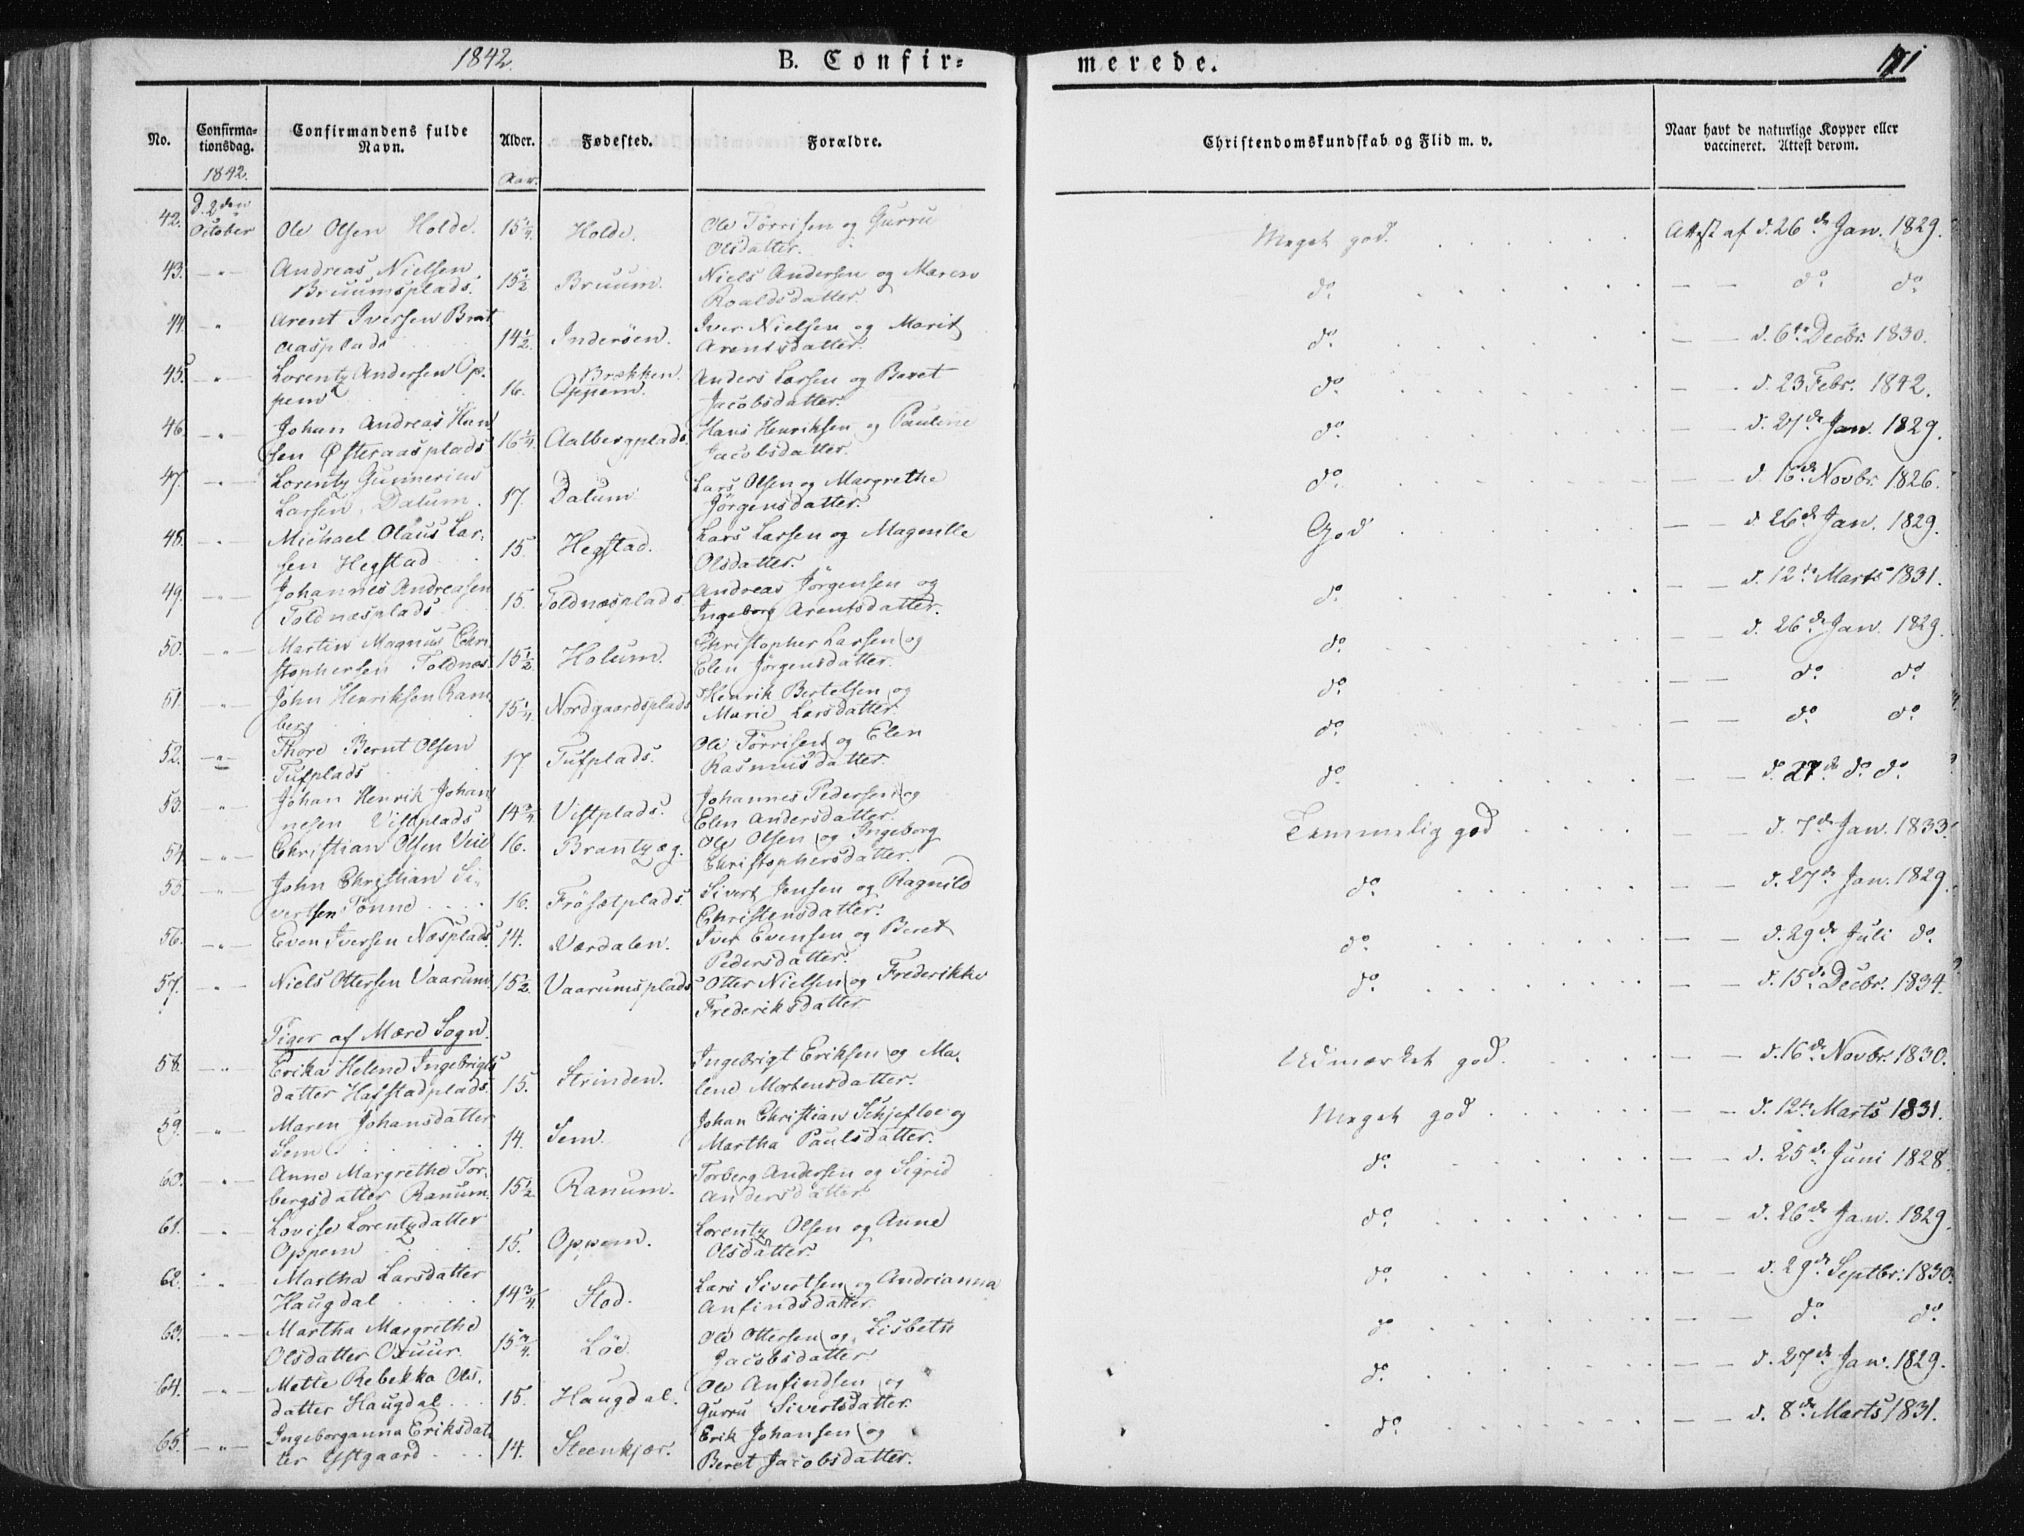 1842. B. Confir= merede.
No. Confirma-tionsdag. Confirmandens fulde Navn. Alder. Fødested. Forældre. Christendomskundskab og Flid m. v. Naar havt de naturlige Kopper eller vaccineret. Attest derom.
1842. Aar.
42. d. 2den October Ole Olsen Holde. 15 1/4. Holde. Ole Tørrisen og Gurru Olsdatter. Meget god. Attest af d. 26de Jan. 1829.
43. — " — Andreas Nielsen Bruumsplads. 15 1/2 Bruum. Niels Andersen og Maren Roaldsdatter. do. — — do. do.
44. — " Arent Iversen Brataasplads 14 1/2. Inderøen. Iver Nielsen og Marit Arentsdatter. do. — — d. 6te Decbr. 1830.
45. — " — Lorentz Andersen Oppem 16. Brækken. Oppem. Anders Larsen og Beret Jacobsdatter. do. — — d. 23 Febr. 1842.
46. — " — Johan Andreas Hansen Østeraasplads 16 1/4. Aalbergplads. Hans Henriksen og Pauline Jacobsdatter. do. — — d. 27de Jan. 1829.
47. — " — Lorentz Gunnerius Larsen Dalum. 17. Dalum. Lars Olsen og Margrethe Jørgensdatter. do. — — d. 16de Novbr. 1826.
48. — " — Michael Olaus Larsen Hegstad 15. Hegstad. Lars Larsen og Magnille Olsdatter. God — — d. 26de Jan. 1829.
49. — " — Johannes Andreasen Toldnæsplads 15. Toldnæsplads. Andreas Jørgensen og Ingeborg Arentsdatter. do. — — d. 12te Marts 1831.
50. — " — Martin Magnus Christophersen Toldnæs 15 1/2 Holum. Christopher Larsen og Elen Jørgensdatter. do. — — d. 26de Jan. 1829.
51. — " — John Henriksen Ramberg 15 1/4. Nordgaardsplads Henrik Bertelsen og Marie Larsdatter. do. — — do. do.
52. — " — Thore Bernt Olsen Tufplads 17 Tufplads. Ole Tørrisen og Elen Rasmusdatter. do. — — do. do.
53. — " Johan Henrik Johannesen Vistplads 14 3/4. Vistplads. Johannes Pedersen og Elen Andersdatter. do. — — d. 27de do. do.
54. — " — Christian Olsen 16. Brantzæg. Ole Olsen og Ingeborg Christophersdatter. Temmelig god — — d. 7de Jan. 1833.
55. — " John Christian Sivertsen Tønne 16. Frøsetplads. Sivert Jensen og Ragnild Christensdatter. do. — — d. 27de Jan. 1829.
56. — " — Even Iversen Næsplads 14. Værdalen. Iver Evensen og Beret Pedersdatter. do. — — d. 29de Juli do.
57. — " — Niels Ottersen Vaarum 15 1/2. Vaarumsplads Otter Nielsen og Frederikke Frederiksdatter do. — — d. 15de Decbr. 1834.
Piger af Mære Sogn.
58. — " Erika Helene Ingebrigtsdatter Hafstadplads. 15. Strinden. Ingebrigt Eriksen og Malene Mortensdatter. Udmærket god. — — d. 16de Novbr. 1830.
59. — " Maren Johansdatter Sem 14. Sem. Johan Christian Schjefloe og Martha Paulsdatter. Meget god — — d. 12te Marts 1831.
60. — " — Anne Margrethe Torbergsdatter Ranum. 15 1/2. Ranum. Torberg Andersen og Sigrid Andersdatter do. — — d. 25de Juni 1828.
61. — " — Lovise Lorentzdatter Oppem 15. Oppem. Lorentz Olsen og Anne Olsdatter. do. — — d. 26de Jan. 1829.
62. " Martha Larsdatter Haugdal 14 3/4. Stod. Lars Sivertsen og Andrianna Anfindsdatter. do. — — d. 29de Septbr. 1830.
63. — " — Martha Margrethe Olsdatter 15 3/4. Løe. Ole Ottersen og Lisbeth Jacobsdatter do. — — do. do.
64. — " — Mette Rebekka Olsdatter Haugdal 15. Haugdal. Ole Anfindsen og Gurru Sivertsdatter. do. — — d. 27de Jan. 1829.
65. — " — Ingeborganna Eriksdatter Ystgaard 14. Steenkjær. Erik Johansen og Beret Jacobsdatter. do. — — d. 8de Marts 1831.